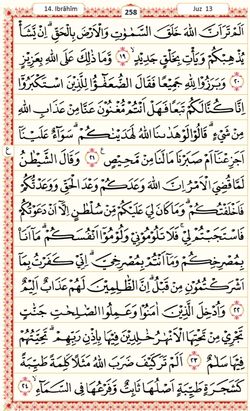 14. Ibrâhîm 258 Juz 13
اَلَمْ تَرَ اَنَّ اللّٰهَ خَلَقَ السَّمٰوٰتِ وَالْاَرْضَ بِالْحَقِّ ۗ اِنْ يَّشَأْ
يُذْهِبْكُمْ وَيَأْتِ بِخَلْقٍ جَدِيْدٍ ۙ ١٩ وَّمَا ذٰلِكَ عَلَى اللّٰهِ بِعَزِيْزٍ
٢٠ وَبَرَزُوْا لِلّٰهِ جَمِيْعًا فَقَالَ الضُّعَفٰۤؤُا لِلَّذِيْنَ اسْتَكْبَرُوْٓا
اِنَّا كُنَّا لَكُمْ تَبَعًا فَهَلْ اَنْتُمْ مُّغْنُوْنَ عَنَّا مِنْ عَذَابِ اللّٰهِ
مِنْ شَيْءٍ ۗ قَالُوْا لَوْ هَدٰىنَا اللّٰهُ لَهَدَيْنٰكُمْ ۗ سَوَاۤءٌ عَلَيْنَآ
اَجَزِعْنَآ اَمْ صَبَرْنَا مَا لَنَا مِنْ مَّحِيْصٍ ٢١ ع وَقَالَ الشَّيْطٰنُ
لَمَّا قُضِيَ الْاَمْرُ اِنَّ اللّٰهَ وَعَدَكُمْ وَعْدَ الْحَقِّ وَوَعَدْتُّكُمْ
فَاَخْلَفْتُكُمْ ۗ وَمَا كَانَ لِيَ عَلَيْكُمْ مِّنْ سُلْطٰنٍ اِلَّآ اَنْ دَعَوْتُكُمْ
فَاسْتَجَبْتُمْ لِيْ ۚ فَلَا تَلُوْمُوْنِيْ وَلُوْمُوْٓا اَنْفُسَكُمْ ۗ مَآ اَنَا۠
بِمُصْرِخِكُمْ وَمَآ اَنْتُمْ بِمُصْرِخِيَّ ۗ اِنِّيْ كَفَرْتُ بِمَآ
اَشْرَكْتُمُوْنِ مِنْ قَبْلُ ۗ اِنَّ الظّٰلِمِيْنَ لَهُمْ عَذَابٌ اَلِيْمٌ
٢٢ وَاُدْخِلَ الَّذِيْنَ اٰمَنُوْا وَعَمِلُوا الصّٰلِحٰتِ جَنّٰتٍ
تَجْرِيْ مِنْ تَحْتِهَا الْاَنْهٰرُ خٰلِدِيْنَ فِيْهَا بِاِذْنِ رَبِّهِمْ ۗ تَحِيَّتُهُمْ
فِيْهَا سَلٰمٌ ٢٣ اَلَمْ تَرَ كَيْفَ ضَرَبَ اللّٰهُ مَثَلًا كَلِمَةً طَيِّبَةً
كَشَجَرَةٍ طَيِّبَةٍ اَصْلُهَا ثَابِتٌ وَّفَرْعُهَا فِى السَّمَاۤءِ ۙ ٢٤